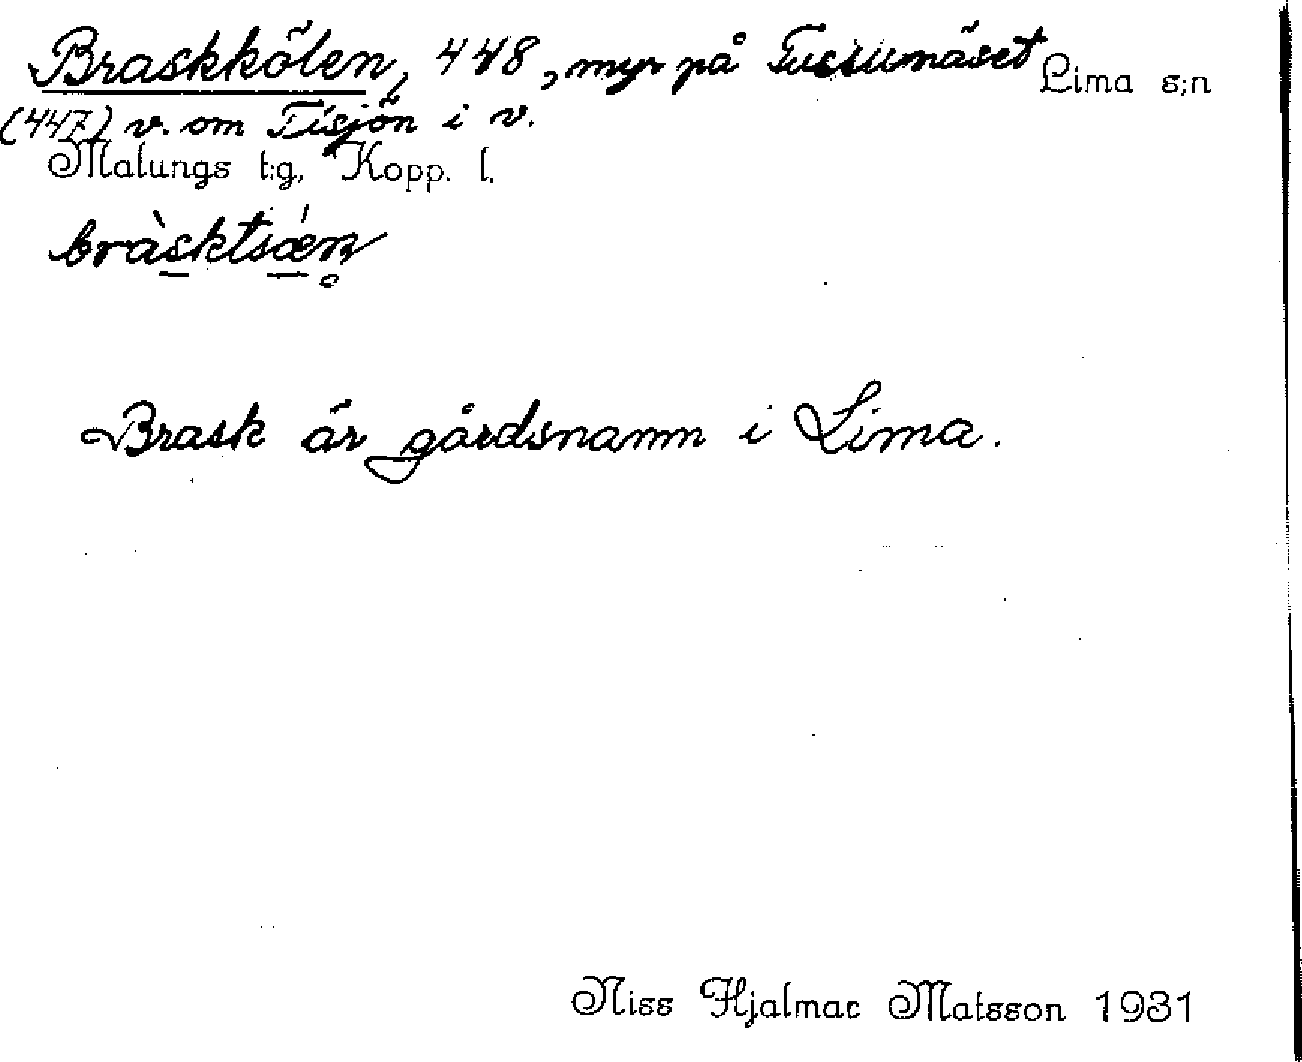 Braskkölen, 448, myr på Lima s:n
(447) v. om Tisjön i v.
Malungs t:g, Kopp. l.
bràsktsǽn̥
Brask är gårdsnamn i Lima.
Niss Hjalmar Matsson 1931